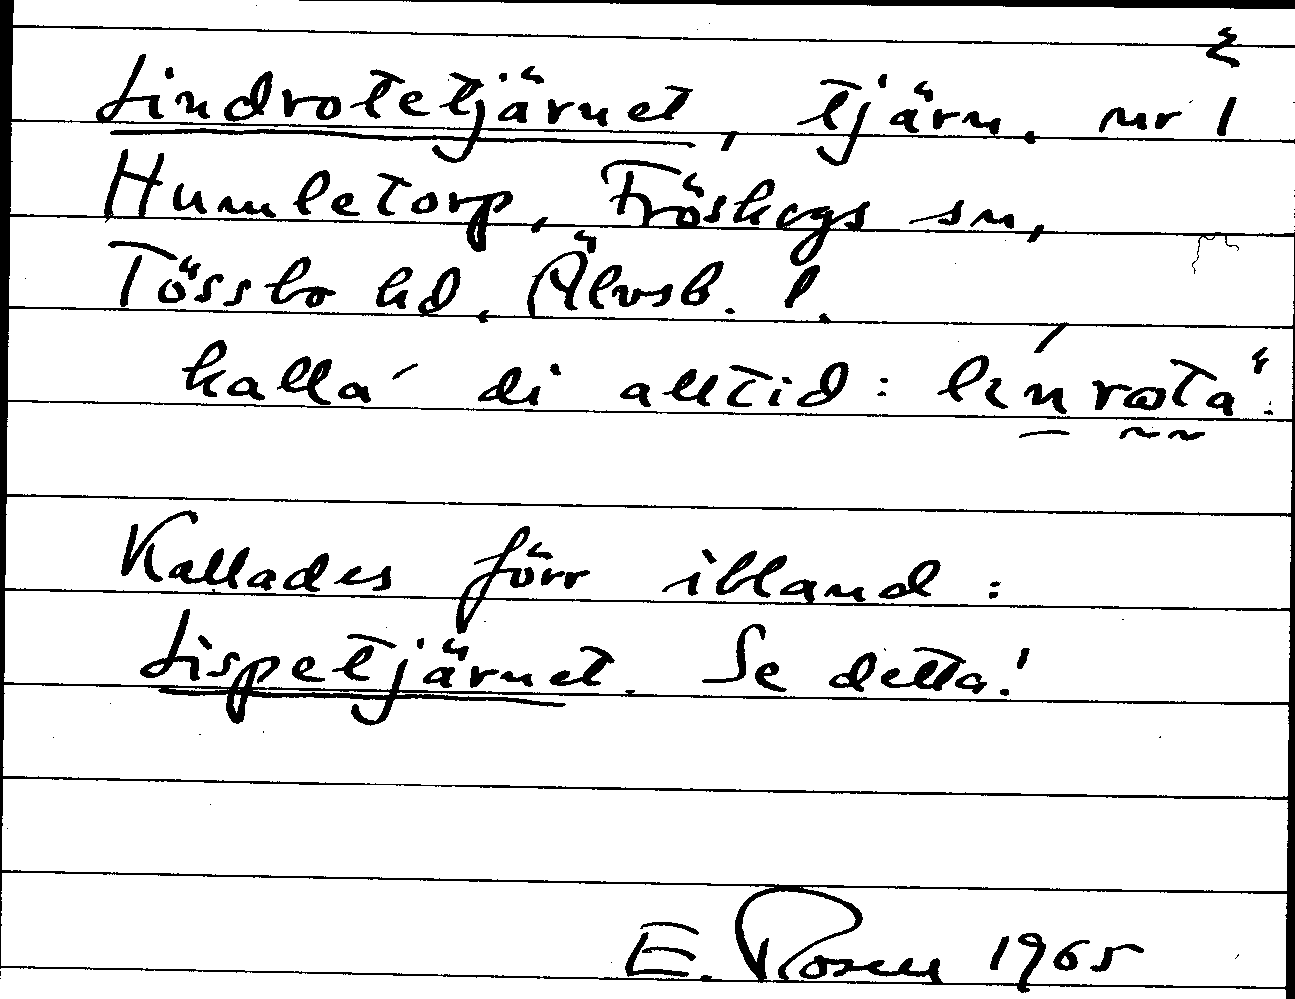 2
Lindrotetjärnet, tjärn, nr 1
Humletorp, Fröskogs sn,
Tössbo hd, Älvsb. l.
kalla di alltid:
Kallades förr ibland:
Lispetjärnet. Se detta!
E. Rosell 1965